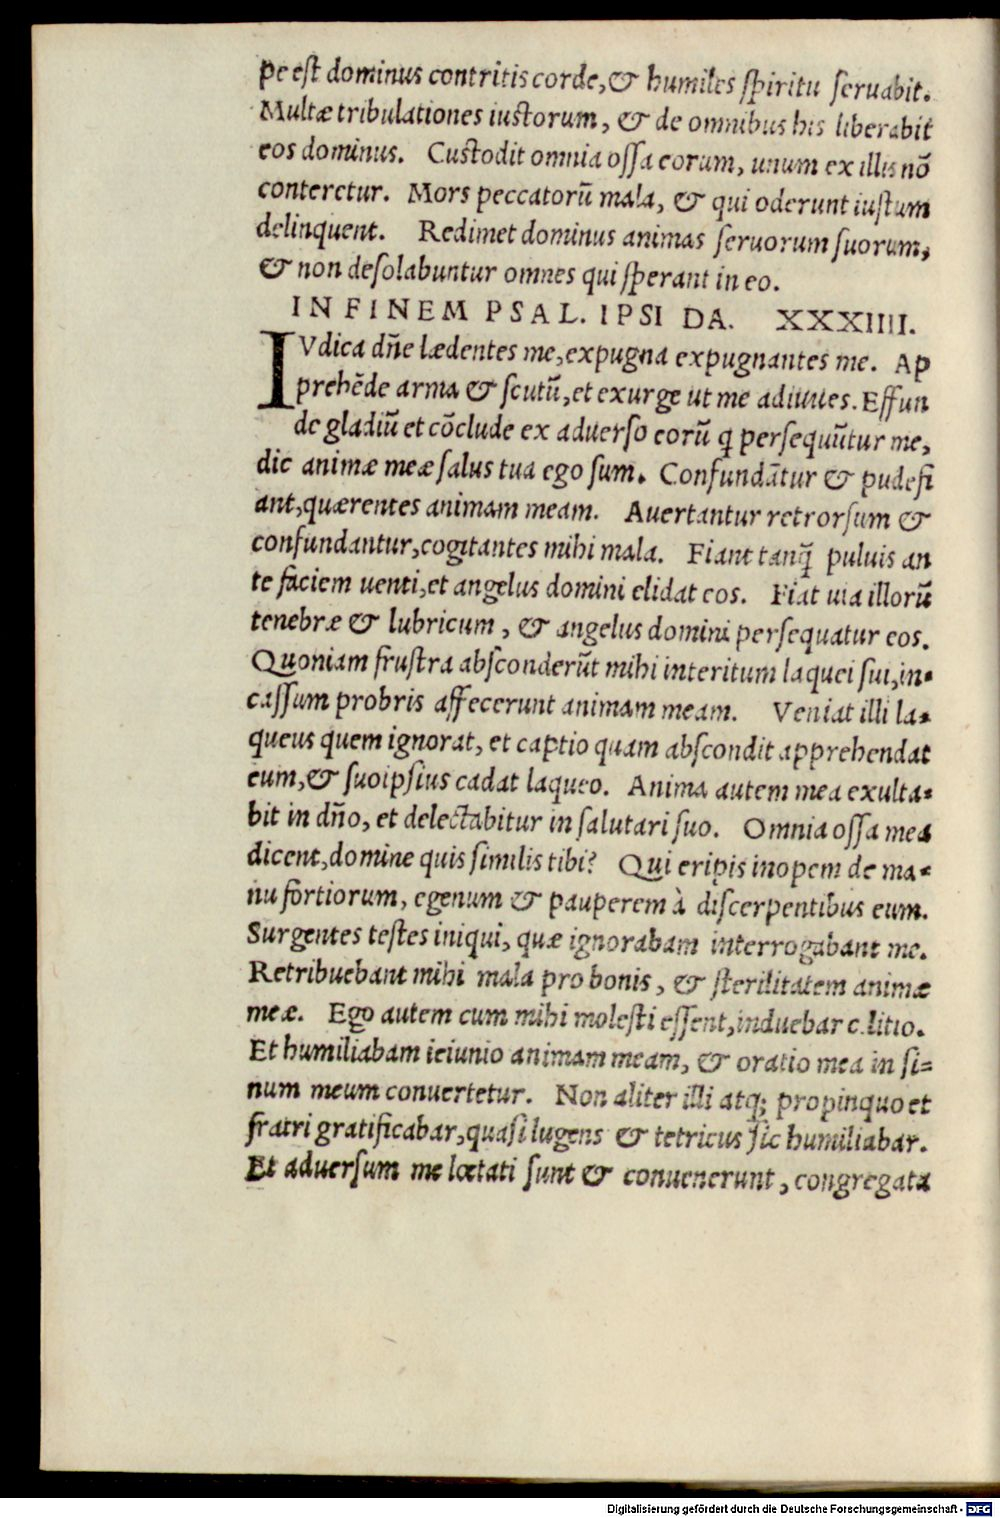 pe est dominus contritis corde, & humiles spiritu seruabit.
Multæ tribulationes iustorum, & de omnibus his liberabit
eos dominus. Custodit omnia ossa eorum, unum ex illis nõ
conteretur. Mors peccatorũ mala, & qui oderunt iustum
delinquent. Redimet dominus animas seruorum suorum,
& non desolabuntur omnes qui sperant in eo.
IN FINEM PSAL. IPSI DA. XXXIIII.
IVdica dñe lædentes me, expugna expugnantes me. Ap
prehẽde arma & scutũ, et exurge ut me adiuues. Effun
de gladiũ et cõclude ex aduerso eorũ q̃ persequũtur me,
dic animæ meæ salus tua ego sum. Confundãtur & pudefi
ant, quærentes animam meam. Auertantur retrorsum &
confundantur, cogitantes mihi mala. Fiant tanq̃ puluis an
te faciem uenti, et angelus domini elidat eos. Fiat uia illorũ
tenebræ & lubricum, & angelus domini persequatur eos.
Quoniam frustra absconderũt mihi interitum laquei sui, in-
cassum probris affecerunt animam meam. Veniat illi la-
queus quem ignorat, et captio quam abscondit apprehendat
eum, & suoipsius cadat laqueo. Anima autem mea exulta-
bit in dño, et delectabitur in salutari suo. Omnia ossa mea
dicent, domine quis similis tibi? Qui eripis inopem de ma-
nu fortiorum, egenum & pauperem à discerpentibus eum.
Surgentes testes iniqui, quæ ignorabam interrogabant me.
Retribuebant mihi mala pro bonis, & sterilitatem animæ
meæ. Ego autem cum mihi molesti essent, induebar cilitio.
Et humiliabam ieiunio animam meam, & oratio mea in si-
num meum conuertetur. Non aliter illi atq; propinquo et
fratri gratificabar, quasi lugens & tetricus sic humiliabar.
Et aduersum me lætati sunt & conuenerunt, congregata
Digitalisierung gefördert durch die Deutsche Forschungsgemeinschaft - DFG